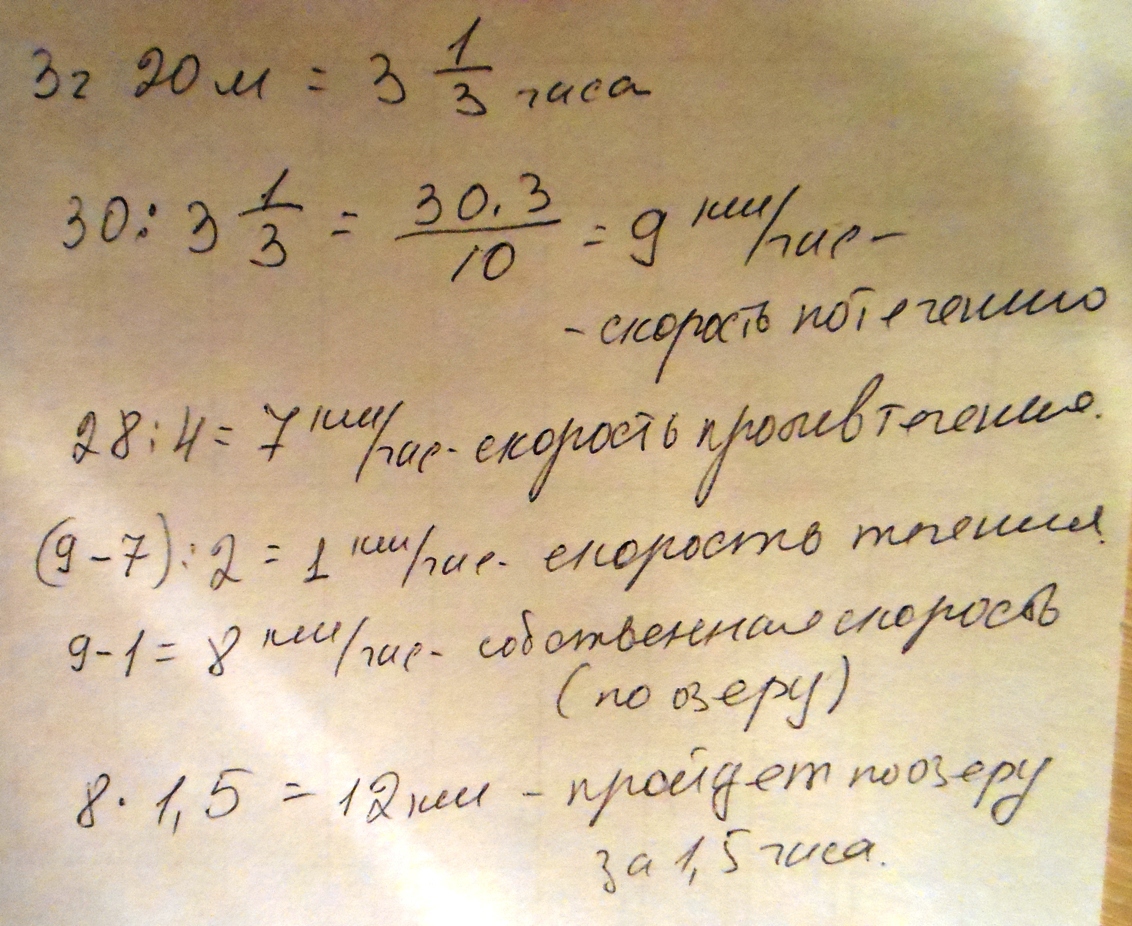 3ч 20м = 3 1/3 часа
30 : 3 1/3 = 30.3/10 = 9 км/час -
- скорость по течению
28 : 4 = 7 км/час - скорость против течения.
(9-7) : 2 = 1 км/час - скорость течения.
9-1 = 8 км/час - собственная скорость
(по озеру)
8 · 1,5 = 12 км - пройдет по озеру
за 1,5 часа.